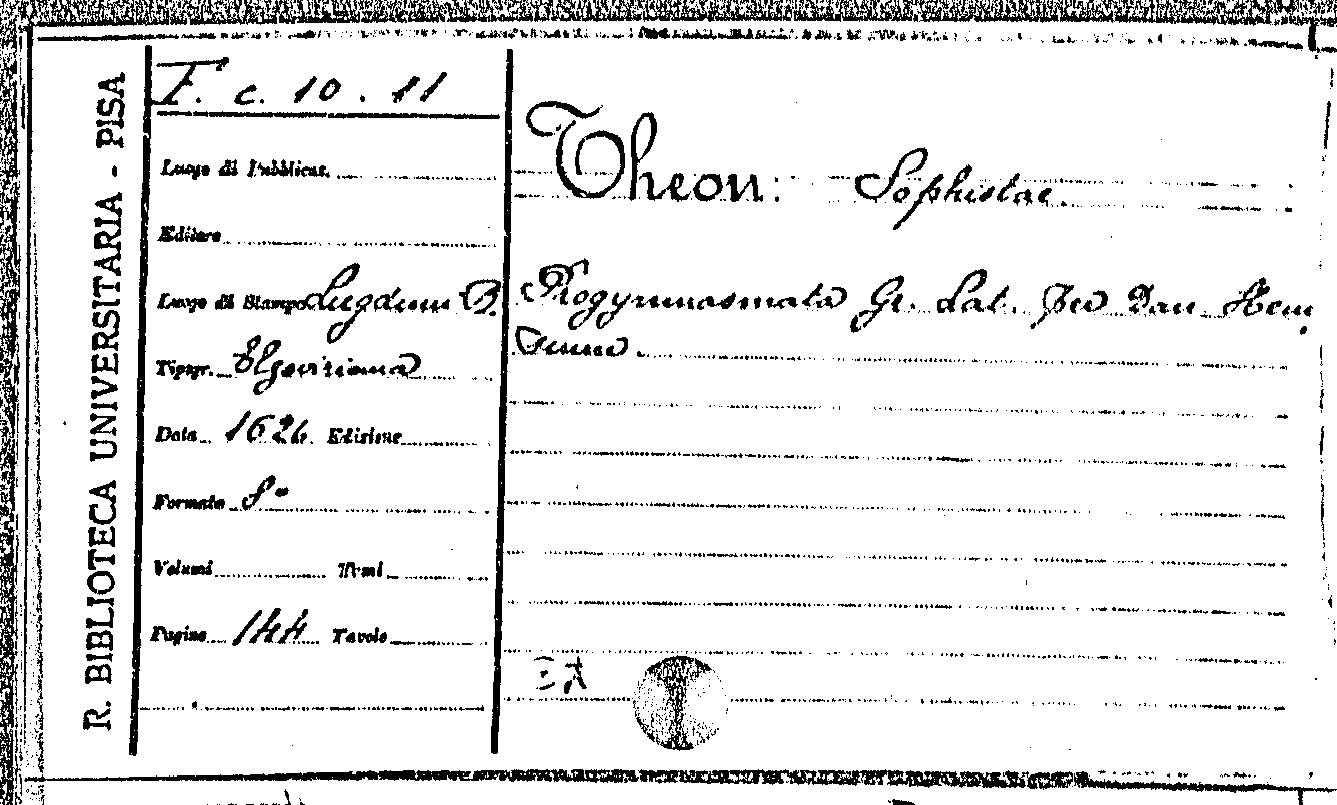 R. BIBLIOTECA UNIVERSITARIA - PISA
F. c. 10. 11
Luogo di Pubblicaz.
Editore
Luogo di Stampa Lugduni B.
Tipogr. Elzeviriana
Data 1626 Edizione
Formato 8°
Volumi Tomi
Pagine 144 Tavole
Theon: Sophistae.
Progymnasmata Gr. Lat. Dan Hein